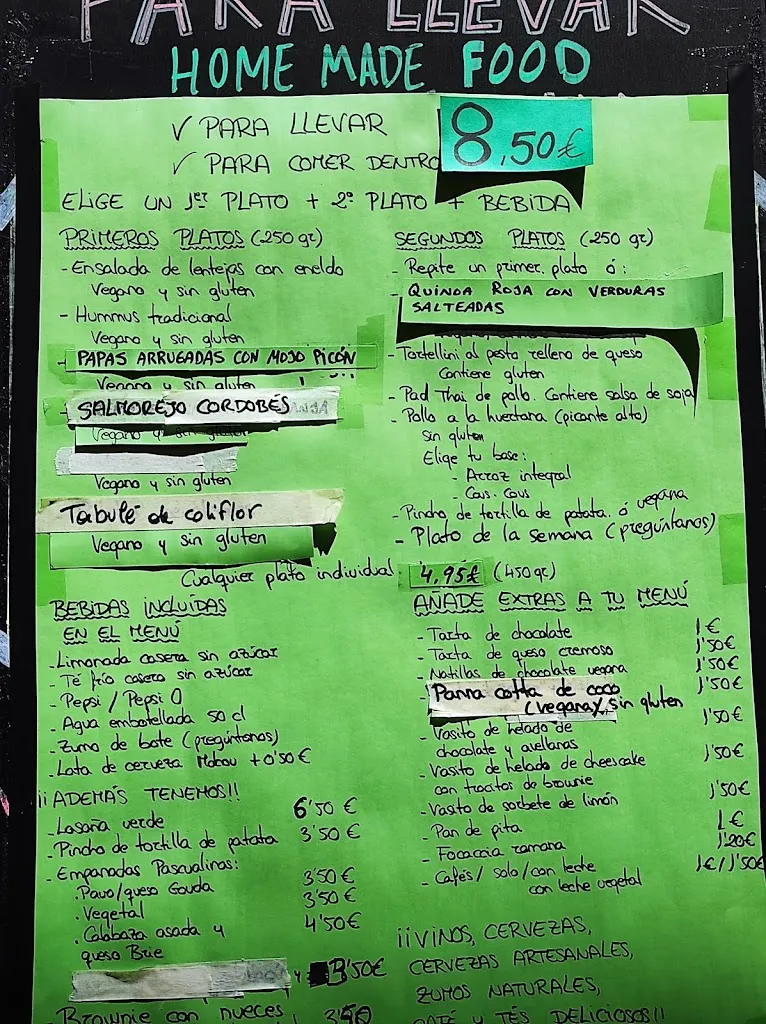 PARA LLEVAR
HOME MADE FOOD
✓ PARA LLEVAR
✓ PARA COMER DENTRO
8,50€
ELIGE UN 1er PLATO + 2º PLATO + BEBIDA
PRIMEROS PLATOS (250 gr)
- Ensalada de lentejas con eneldo
Vegano y sin gluten
- Hummus tradicional
Vegano y sin gluten
- PAPAS ARRUGADAS CON MOJO PICÓN
Vegano y sin gluten
- SALMOREJO CORDOBÉS
Vegano y sin gluten
Vegano y sin gluten
Tabulé de coliflor
Vegano y sin gluten
SEGUNDOS PLATOS (250 gr)
- Repite un primer plato ó:
- QUINOA ROJA CON VERDURAS
SALTEADAS
- Tortellini al pesto relleno de queso
Contiene gluten
- Pad Thai de pollo. Contiene salsa de soja
- Pollo a la huertana (picante alto)
Sin gluten
Elige tu base:
- Arroz integral
- Cous-Cous
- Pincho de tortilla de patata ó vegana
- Plato de la semana (pregúntanos)
Cualquier plato individual 4,95€ (450 gr)
BEBIDAS INCLUÍDAS
EN EL MENÚ
- Limonada casera sin azúcar
- Té frío casero sin azúcar
- Pepsi / Pepsi 0
- Agua embotellada 50 cl
- Zumo de bote (pregúntanos)
- Lata de cerveza Mahou +0'50€
¡¡ADEMÁS TENEMOS!!
- Lasaña verde 6'50 €
- Pincho de tortilla de patata 3'50 €
- Empanadas Pascualinas:
. Pavo/queso Gouda 3'50€
. Vegetal 3'50€
. Calabaza asada y 4'50€
queso Brie
y 3'50€
- Brownie con nueces 3'50
AÑADE EXTRAS A TU MENÚ
- Tarta de chocolate 1€
- Tarta de queso cremoso 1'50€
- Natillas de chocolate vegana 1'50€
Panna cotta de coco 1'50€
(vegana) sin gluten
- Vasito de helado de 1'50€
chocolate y avellanas
- Vasito de helado de cheescake 1'50€
con trocitos de brownie
- Vasito de sorbete de limón 1'50€
- Pan de pita 1€
- Focaccia romana 1'20€
- Cafés / solo / con leche 1€ / 1'50€
con leche vegetal
¡¡VINOS, CERVEZAS,
CERVEZAS ARTESANALES,
ZUMOS NATURALES,
CAFÉ Y TÉS DELICIOSOS!!